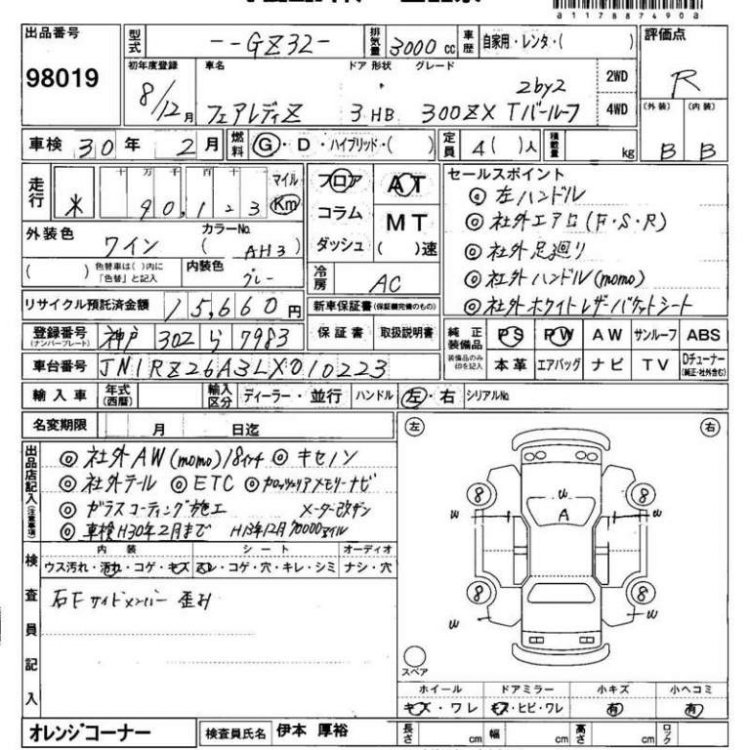 a1178874900
出品番号 98019
型式 --GZ32-
排気量 3000 cc
車歴 自家用・レンタ・( )
評価点 R
(外装) B (内装) B
初年度登録 8/12月
車名 フェアレディZ
ドア 形状 3 HB
グレード 2by2 300ZX Tバールーフ
2WD
4WD
車検 30年 2月
燃料 G・D・ハイブリッド・( )
定員 4( )人
積載量 kg
走行 米 十万千百十 90,123 マイル Km
フロア
コラム
ダッシュ
AT
MT
( )速
セールスポイント
◎左ハンドル
◎社外エアロ(F・S・R)
◎社外足廻り
◎社外ハンドル(momo)
◎社外ホワイトレザーバケットシート
外装色 ワイン
カラーNo. (AH3)
( ) 色替車は( )内に「色替」と記入
内装色 グレー
冷房 AC
リサイクル預託済金額 15,660円
新車保証書(保証継続完備のもの)
登録番号(ナンバープレート) 神戸 302 ら 7983
保証書 取扱説明書
純正装備品 PS PW AW サンルーフ ABS
装備品のみ印を記入 本革 エアバッグ ナビ TV Dチューナー(純正・社外含む)
車台番号 JN1RZ26A3LX010223
輸入車 年式(西暦)
輸入区分 ディーラー・並行
ハンドル 左・右
シリアルNo.
名変期限 月 日迄
出品店記入(注意事項)
◎社外AW(momo)18インチ ◎キセノン
◎社外テール ◎ETC ◎カロッツェリアメモリーナビ
◎ガラスコーティング施工 メーター改ザン
◎車検H30年2月まで H13年12月70000マイル
検査員記入
内装 シート オーディオ
ウス汚れ・汚れ・コゲ・キズ スレ・コゲ・穴・キレ・シミ ナシ・穴
右Fサイドメンバー歪み
左 右
8 8
u
A
u u
8 8
u u
スペア
ホイール ドアミラー 小キズ 小ヘコミ
キズ・ワレ キズ・ヒビ・ワレ 有 有
オレンジコーナー
検査員氏名 伊本 厚裕
長さ cm 幅 cm 高さ cm ロック